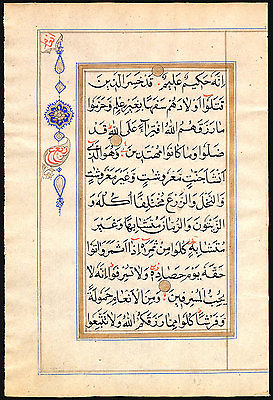 إنه حكيم عليم قد خسر الذين
قتلوا أولادهم سفها بغير علم وحرموا
ما رزقهم الله افتراء على الله قد
ضلوا وما كانوا مهتدين وهو الذي
أنشأ جنت معروشت وغير معروشت
والنخل والزرع مختلفا أكله و
الزيتون والرمان متشابها وغير
متشابه كلوا من ثمره إذا أثمر وآتوا
حقه يوم حصاده ولا تسرفوا إنه لا
يحب المسرفين ومن الأنعام حمولة
وفرشا كلوا مما رزقكم الله ولا تتبعوا